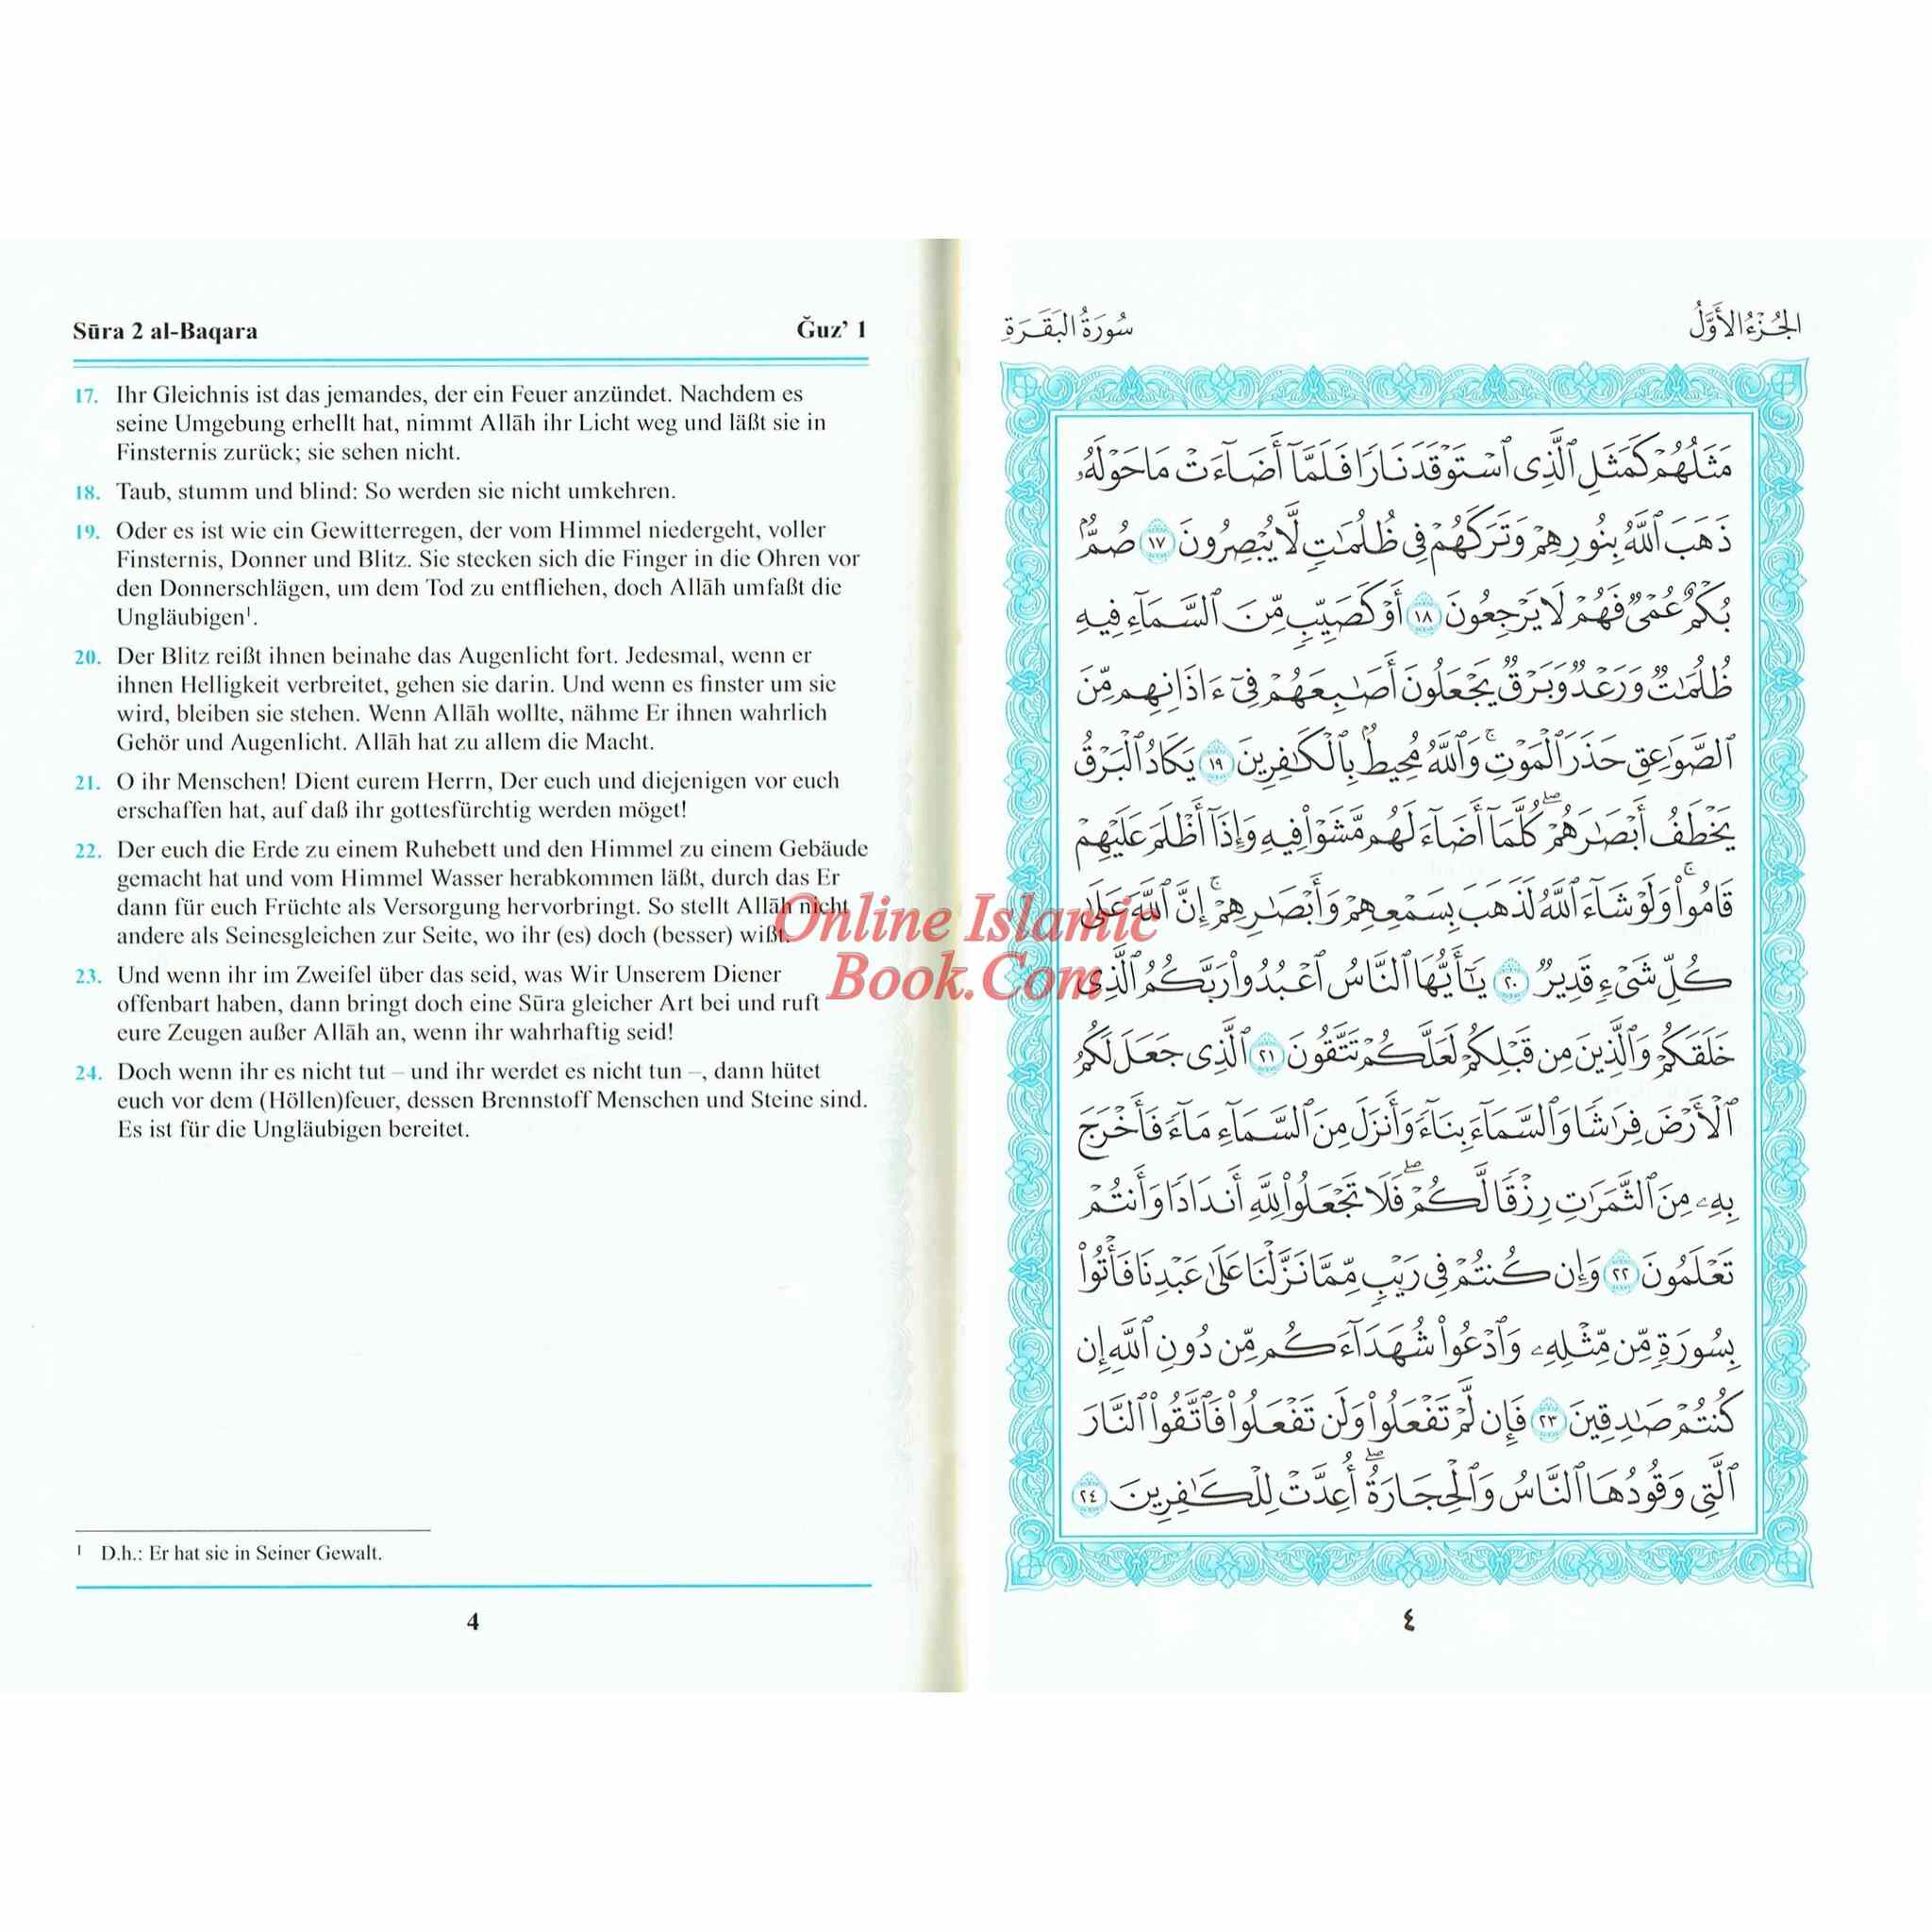 Sūra 2 al-Baqara
Ǧuz’ 1
17. Ihr Gleichnis ist das jemandes, der ein Feuer anzündet. Nachdem es
seine Umgebung erhellt hat, nimmt Allāh ihr Licht weg und läßt sie in
Finsternis zurück; sie sehen nicht.
18. Taub, stumm und blind: So werden sie nicht umkehren.
19. Oder es ist wie ein Gewitterregen, der vom Himmel niedergeht, voller
Finsternis, Donner und Blitz. Sie stecken sich die Finger in die Ohren vor
den Donnerschlägen, um dem Tod zu entfliehen, doch Allāh umfaßt die
Ungläubigen¹.
20. Der Blitz reißt ihnen beinahe das Augenlicht fort. Jedesmal, wenn er
ihnen Helligkeit verbreitet, gehen sie darin. Und wenn es finster um sie
wird, bleiben sie stehen. Wenn Allāh wollte, nähme Er ihnen wahrlich
Gehör und Augenlicht. Allāh hat zu allem die Macht.
21. O ihr Menschen! Dient eurem Herrn, Der euch und diejenigen vor euch
erschaffen hat, auf daß ihr gottesfürchtig werden möget!
22. Der euch die Erde zu einem Ruhebett und den Himmel zu einem Gebäude
gemacht hat und vom Himmel Wasser herabkommen läßt, durch das Er
dann für euch Früchte als Versorgung hervorbringt. So stellt Allāh nicht
andere als Seinesgleichen zur Seite, wo ihr (es) doch (besser) wißt.
23. Und wenn ihr im Zweifel über das seid, was Wir Unserem Diener
offenbart haben, dann bringt doch eine Sūra gleicher Art bei und ruft
eure Zeugen außer Allāh an, wenn ihr wahrhaftig seid!
24. Doch wenn ihr es nicht tut – und ihr werdet es nicht tun –, dann hütet
euch vor dem (Höllen)feuer, dessen Brennstoff Menschen und Steine sind.
Es ist für die Ungläubigen bereitet.
¹ D.h.: Er hat sie in Seiner Gewalt.
4
Online Islamic
Book.Com
الجُزْءُ الأَوَّلُ
سُورَةُ البَقَرَةِ
مَثَلُهُمْ كَمَثَلِ ٱلَّذِى ٱسْتَوْقَدَ نَارًا فَلَمَّآ أَضَآءَتْ مَا حَوْلَهُۥ
ذَهَبَ ٱللَّهُ بِنُورِهِمْ وَتَرَكَهُمْ فِى ظُلُمَٰتٍ لَّا يُبْصِرُونَ ١٧ صُمٌّۢ
بُكْمٌ عُمْىٌ فَهُمْ لَا يَرْجِعُونَ ١٨ أَوْ كَصَيِّبٍ مِّنَ ٱلسَّمَآءِ فِيهِ
ظُلُمَٰتٌ وَرَعْدٌ وَبَرْقٌ يَجْعَلُونَ أَصَٰبِعَهُمْ فِىٓ ءَاذَانِهِم مِّنَ
ٱلصَّوَٰعِقِ حَذَرَ ٱلْمَوْتِ ۚ وَٱللَّهُ مُحِيطٌۢ بِٱلْكَٰفِرِينَ ١٩ يَكَادُ ٱلْبَرْقُ
يَخْطَفُ أَبْصَٰرَهُمْ ۖ كُلَّمَآ أَضَآءَ لَهُم مَّشَوْا۟ فِيهِ وَإِذَآ أَظْلَمَ عَلَيْهِمْ
قَامُوا۟ ۚ وَلَوْ شَآءَ ٱللَّهُ لَذَهَبَ بِسَمْعِهِمْ وَأَبْصَٰرِهِمْ ۚ إِنَّ ٱللَّهَ عَلَىٰ
كُلِّ شَىْءٍ قَدِيرٌ ٢٠ يَٰٓأَيُّهَا ٱلنَّاسُ ٱعْبُدُوا۟ رَبَّكُمُ ٱلَّذِى
خَلَقَكُمْ وَٱلَّذِينَ مِن قَبْلِكُمْ لَعَلَّكُمْ تَتَّقُونَ ٢١ ٱلَّذِى جَعَلَ لَكُمُ
ٱلْأَرْضَ فِرَٰشًا وَٱلسَّمَآءَ بِنَآءً وَأَنزَلَ مِنَ ٱلسَّمَآءِ مَآءً فَأَخْرَجَ
بِهِۦ مِنَ ٱلثَّمَرَٰتِ رِزْقًا لَّكُمْ ۖ فَلَا تَجْعَلُوا۟ لِلَّهِ أَندَادًا وَأَنتُمْ
تَعْلَمُونَ ٢٢ وَإِن كُنتُمْ فِى رَيْبٍ مِّمَّا نَزَّلْنَا عَلَىٰ عَبْدِنَا فَأْتُوا۟
بِسُورَةٍ مِّن مِّثْلِهِۦ وَٱدْعُوا۟ شُهَدَآءَكُم مِّن دُونِ ٱللَّهِ إِن
كُنتُمْ صَٰدِقِينَ ٢٣ فَإِن لَّمْ تَفْعَلُوا۟ وَلَن تَفْعَلُوا۟ فَٱتَّقُوا۟ ٱلنَّارَ
ٱلَّتِى وَقُودُهَا ٱلنَّاسُ وَٱلْحِجَارَةُ ۖ أُعِدَّتْ لِلْكَٰفِرِينَ ٢٤
٤